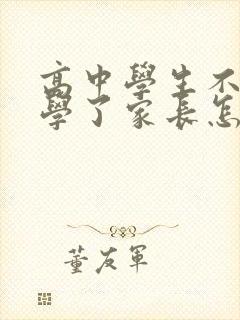 高中學生不
學了家長怎
董友軍